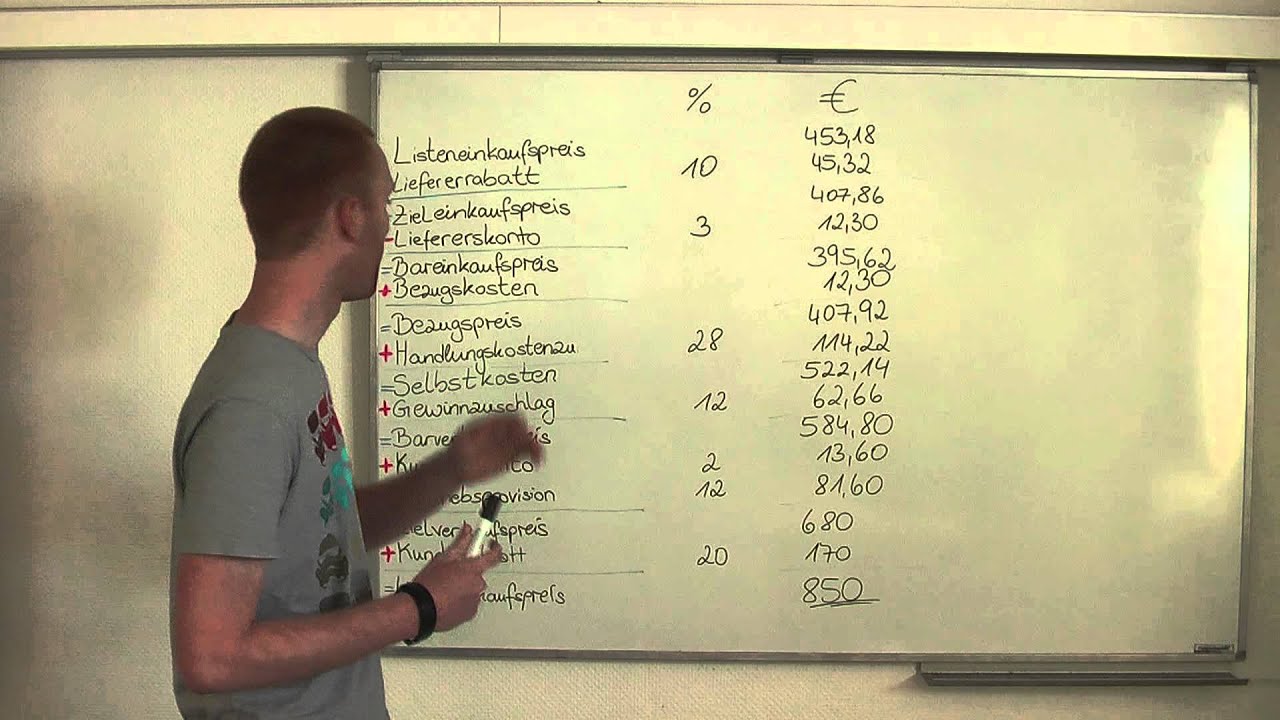 % €
Listeneinkaufspreis 453,18
Liefererrabatt 10 45,32
Zieleinkaufspreis 407,86
- Liefererskonto 3 12,30
= Bareinkaufspreis 395,62
+ Bezugskosten 12,30
= Bezugspreis 407,92
+ Handlungskostenzu 28 114,22
= Selbstkosten 522,14
+ Gewinnzuschlag 12 62,66
= 584,80
+ 2 13,60
12 81,60
680
+ 20 170
= 850